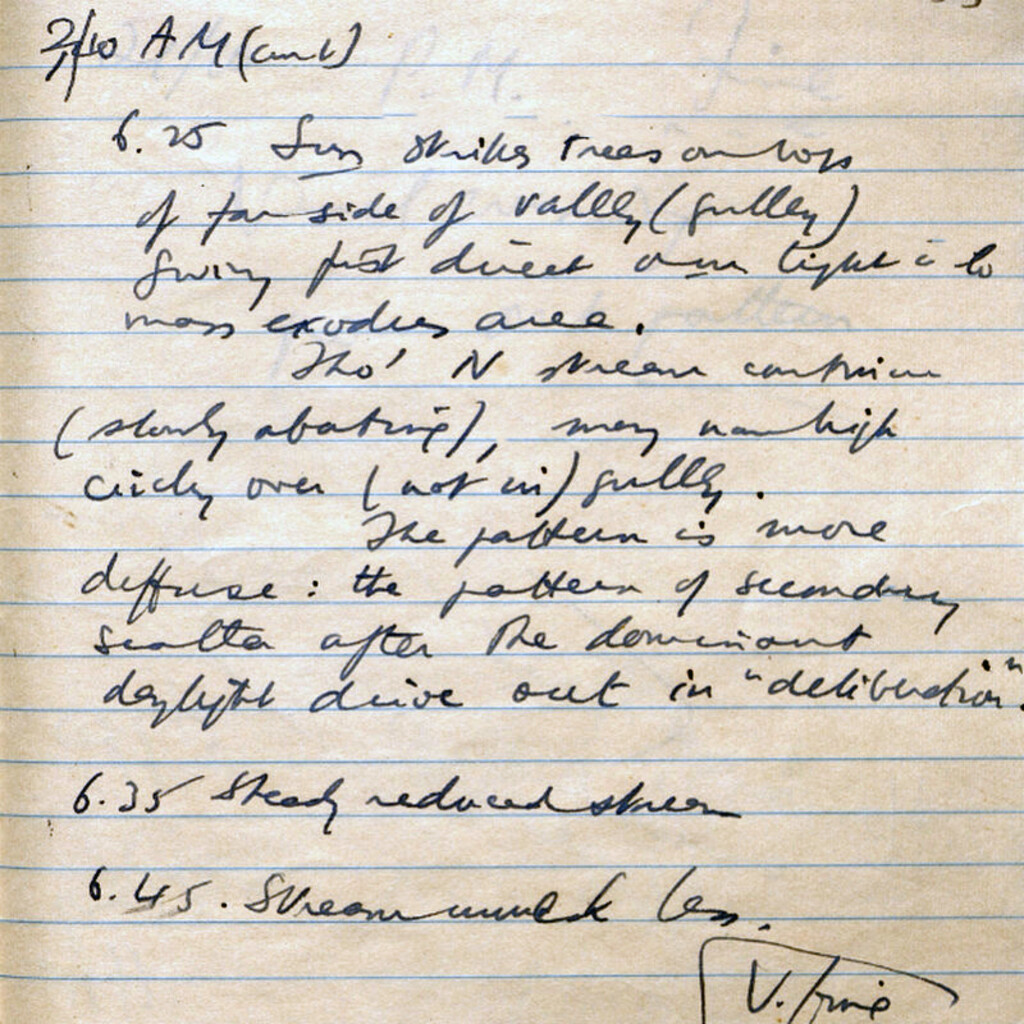 2/10 AM (cont)
6.25 Sun strikes trees on tops
of far side of valley (gulley)
giving first direct sun light i to
mass exodus area.
Tho' N stream continues
(slowly abating), many now high
circling over (not in) gulley.
The pattern is more
diffuse: the pattern of secondary
scatter after the dominant
daylight drive out in "deliberation".
6.35 Steady reduced stream
6.45. Stream much less.
V. fine